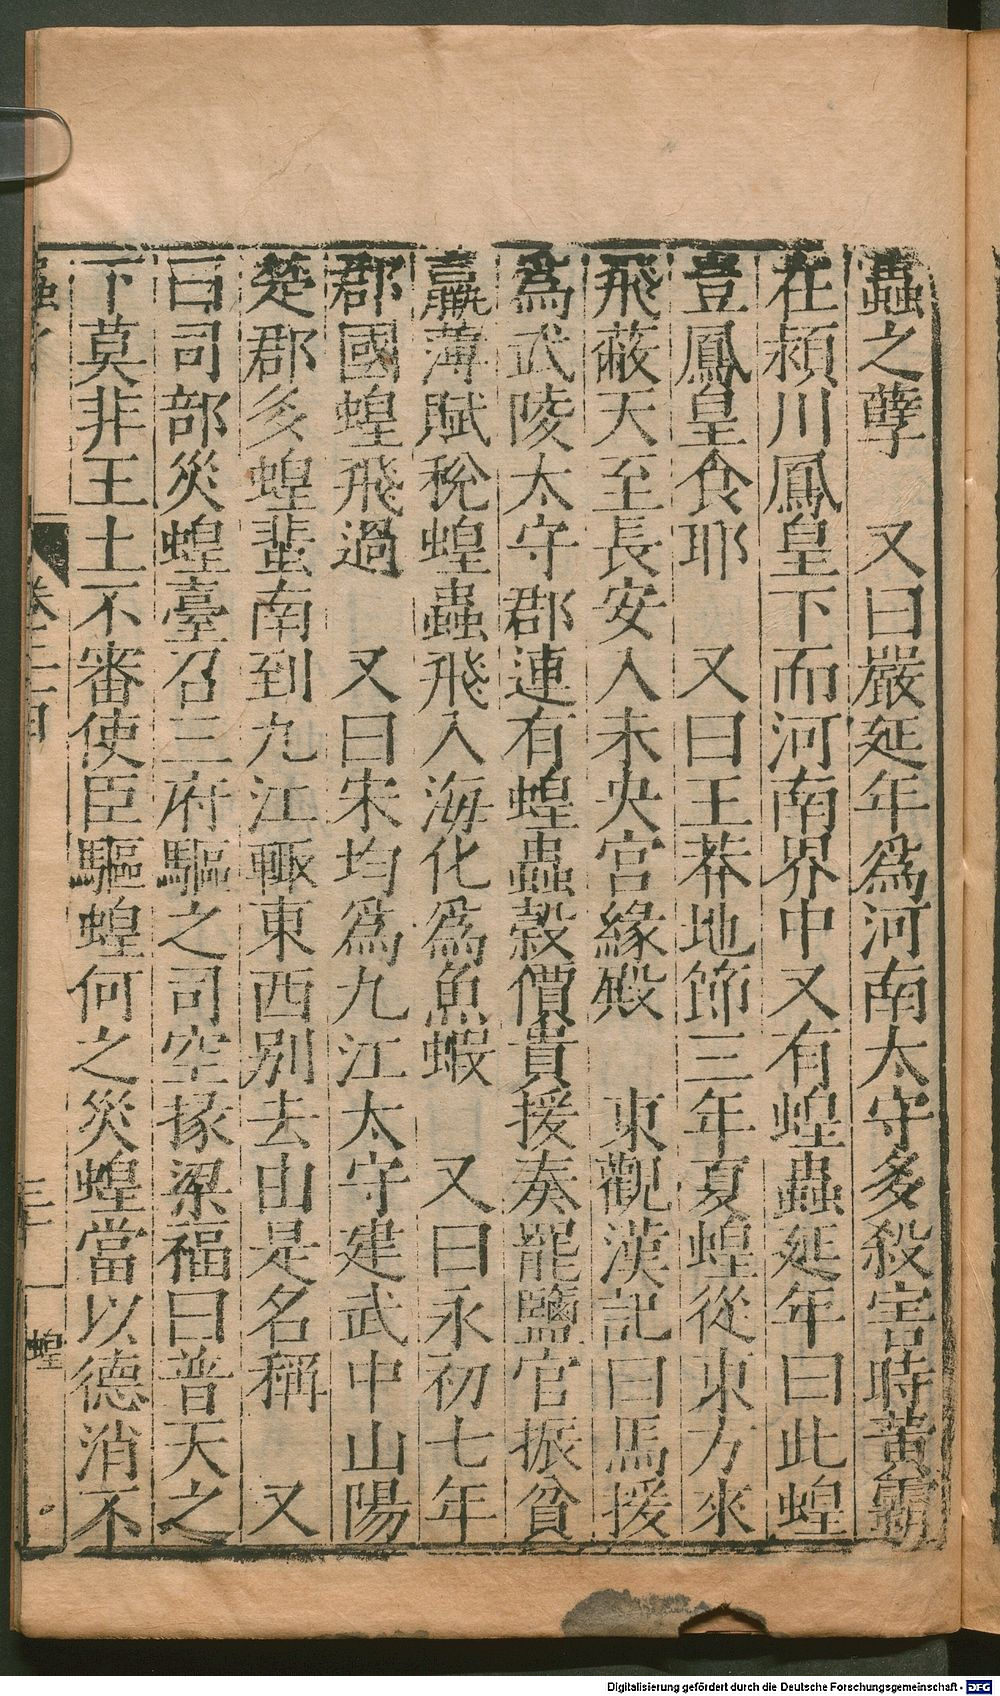 蟲之孽　又曰嚴延年爲河南太守多殺害時黃霸
在潁川鳳皇下而河南界中又有蝗蟲延年曰此蝗
豈鳳皇食耶　又曰王莽地節三年夏蝗從東方來
飛蔽天至長安入未央宮緣殿　東觀漢記曰馬援
爲武陵太守郡連有蝗蟲榖價貴援奏罷鹽官振貧
羸薄賦稅蝗蟲飛入海化爲魚蝦　又曰永初七年
郡國蝗飛過　又曰宋均爲九江太守建武中山陽
楚郡多蝗蜚南到九江輒東西別去由是名稱　又
曰司部災蝗臺召三府驅之司空掾梁福曰普天之
下莫非王土不審使臣驅蝗何之災蝗當以德消不
卷三百
三
蝗
Digitalisierung gefördert durch die Deutsche Forschungsgemeinschaft - DFG